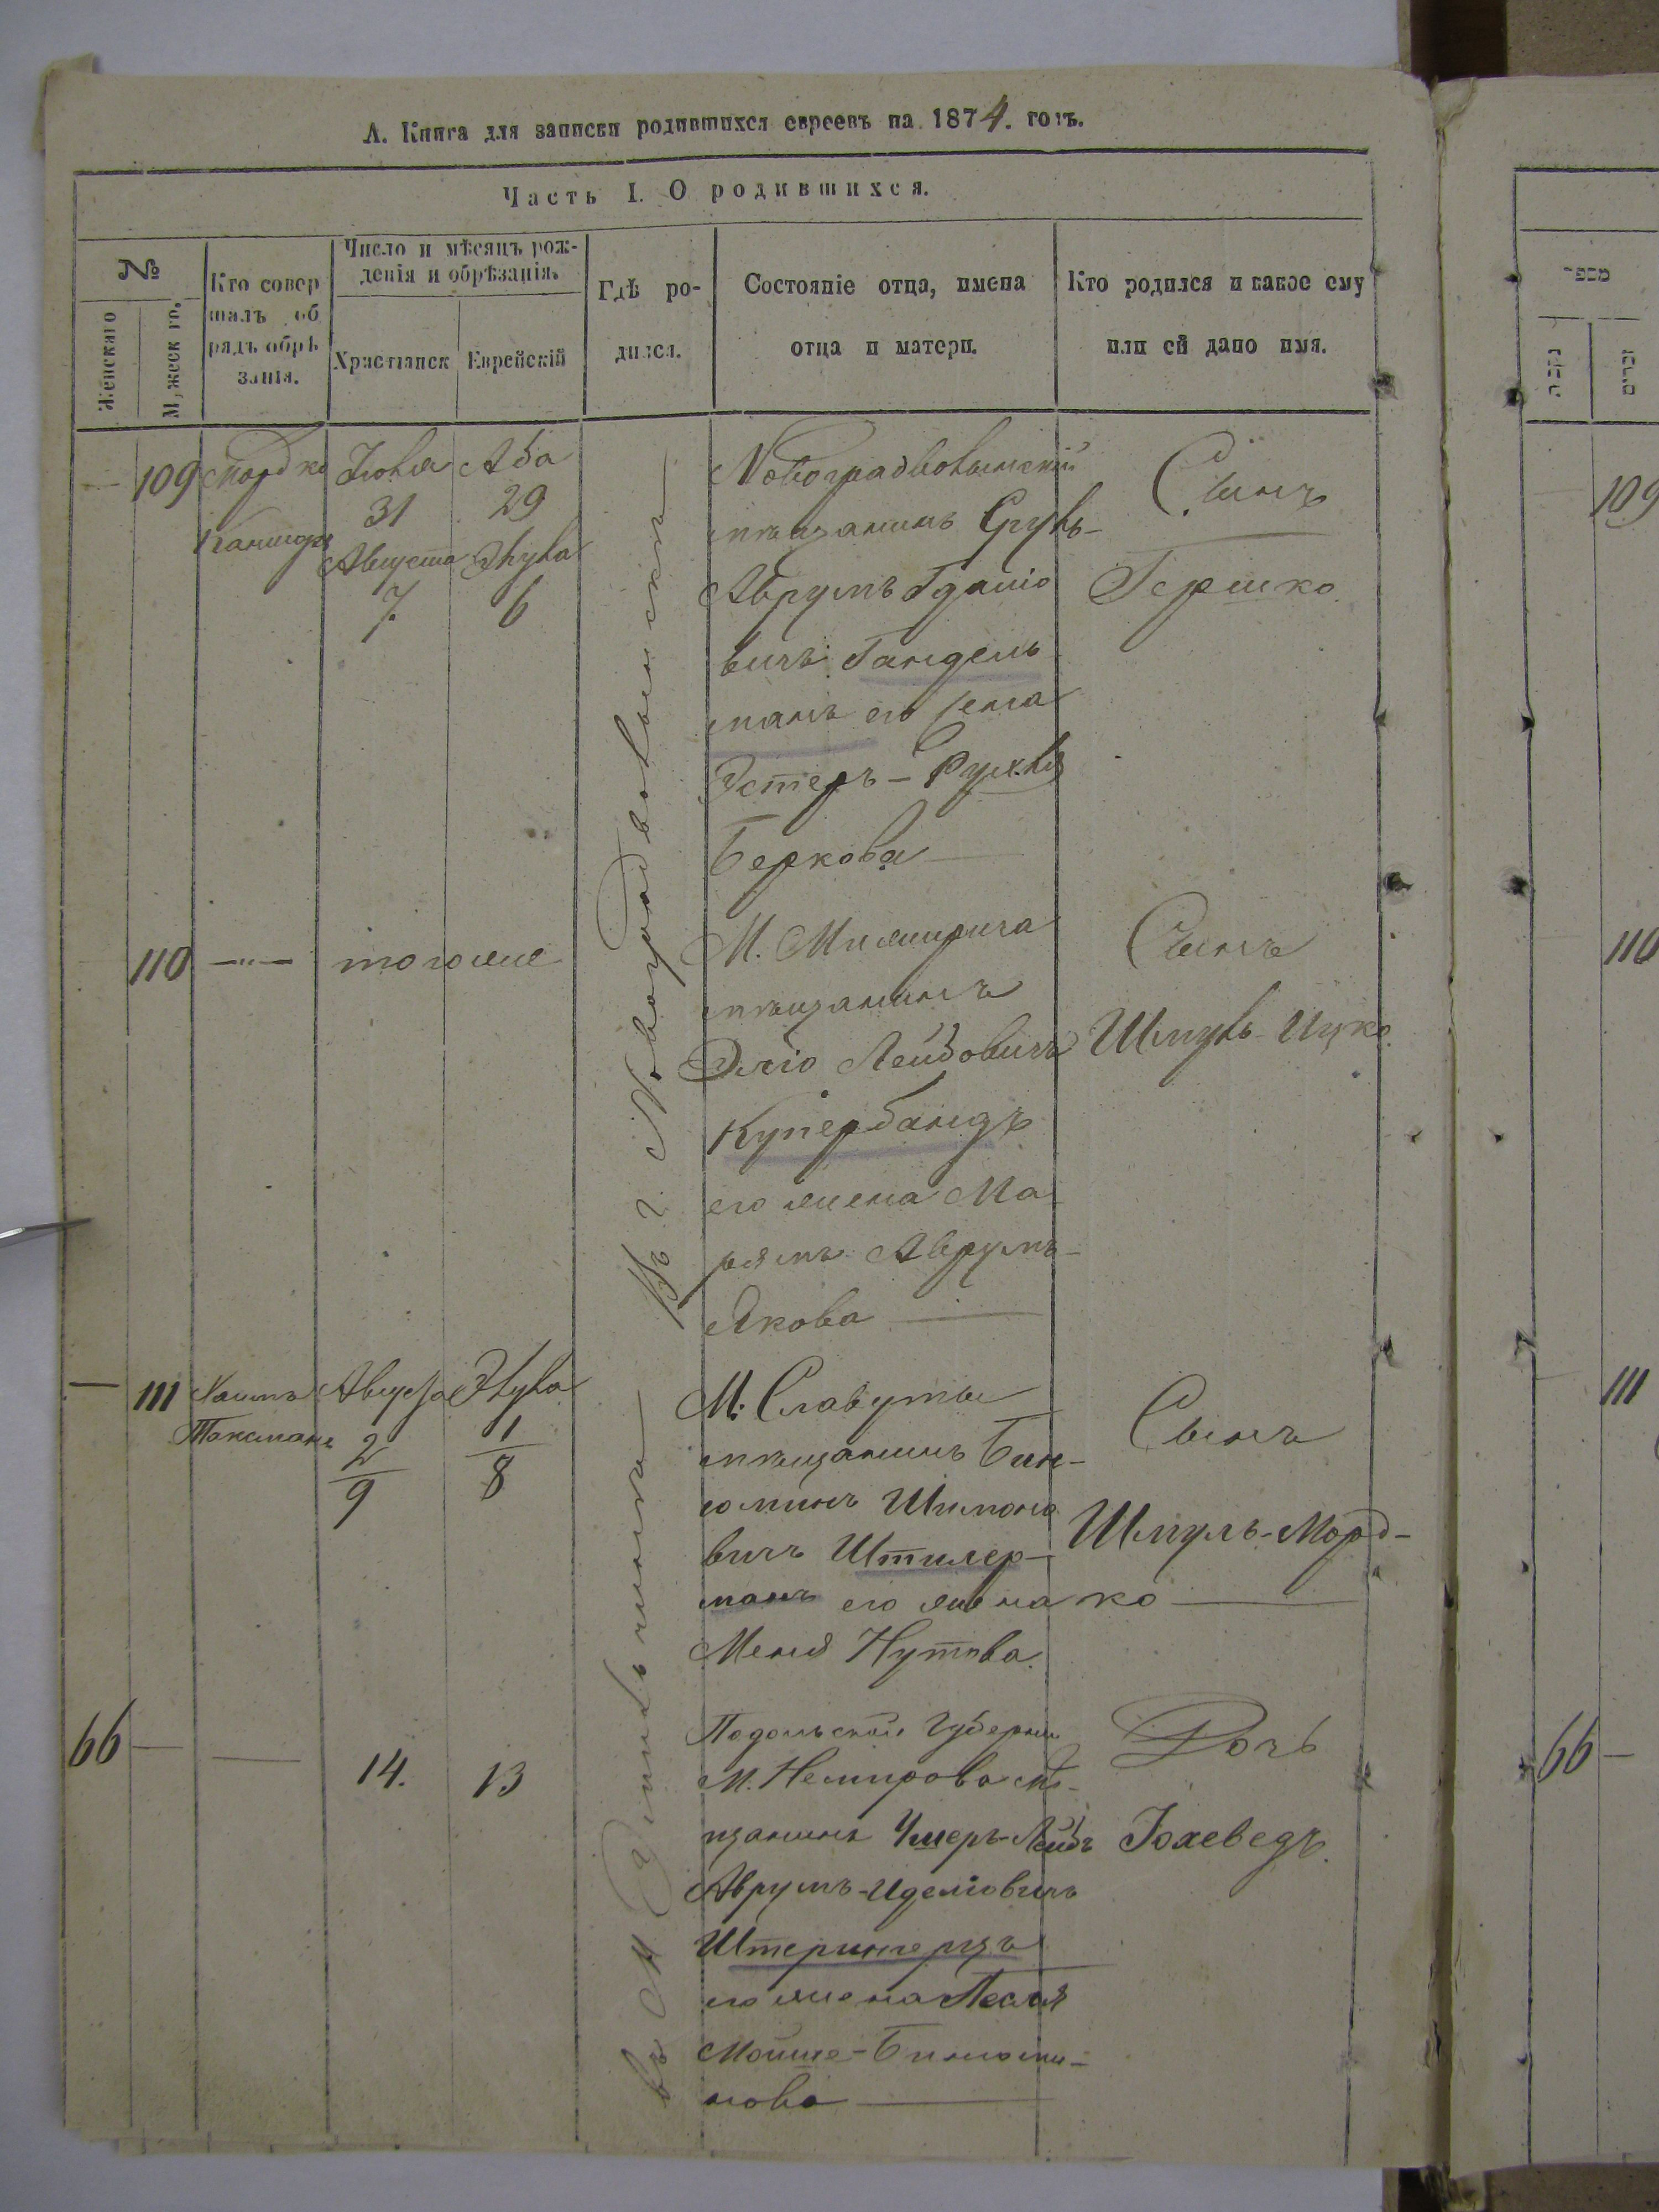 А. Книга для записки родившихся евреевъ на 1874. годъ.
Часть I. О родившихся.
№
Женскаго
Мужеск го.
Кто совер
шалъ об
рядъ обрѣ
занія.
Число и мѣсяцъ рож-
денія и обрѣзанія.
Христіанск
Еврейскій
Гдѣ ро-
дился.
Состояніе отца, имена
отца и матери.
Кто родился и какое ему
или ей дано имя.
109
Мордко
Іюля
31
Августа
7.
Аба
29
Элула
6
Въ г. Новоградволынскѣ
Новоградволынскій
мѣщанинъ Сруль-
Аврумъ Гдаліо
вичъ Гандель
манъ его жена
Эстеръ-Рухля
Беркова
Сынъ
Гершко.
110
—"—
тогоже
М.
мѣщанинъ
Эліо Лейбовичъ
Купербандъ
его жена Ма
рямъ Аврумъ-
Якова
Сынъ
Шмуль-Ицко.
—
111
Хаимъ
Токманъ
Августа
2
9
Элула
1
8
М. Славуты
мѣщанинъ Бин-
юминъ Шимоно
вичъ Штилер-
манъ его жена
Меня Нутова.
Сынъ
Шмуль-Морд-
ко
66
—
—
14.
13
Подольской Губерніи
М. Немирова мѣ-
щанинъ Ушеръ-Лейбъ
Аврумъ-Иделіовичъ
Штернгерцъ
его жена Песля
Мойше-Бинюми-
нова
Дочь
Іохеведъ.
מספר
נקבות
זכרים
109
110
111
66 —